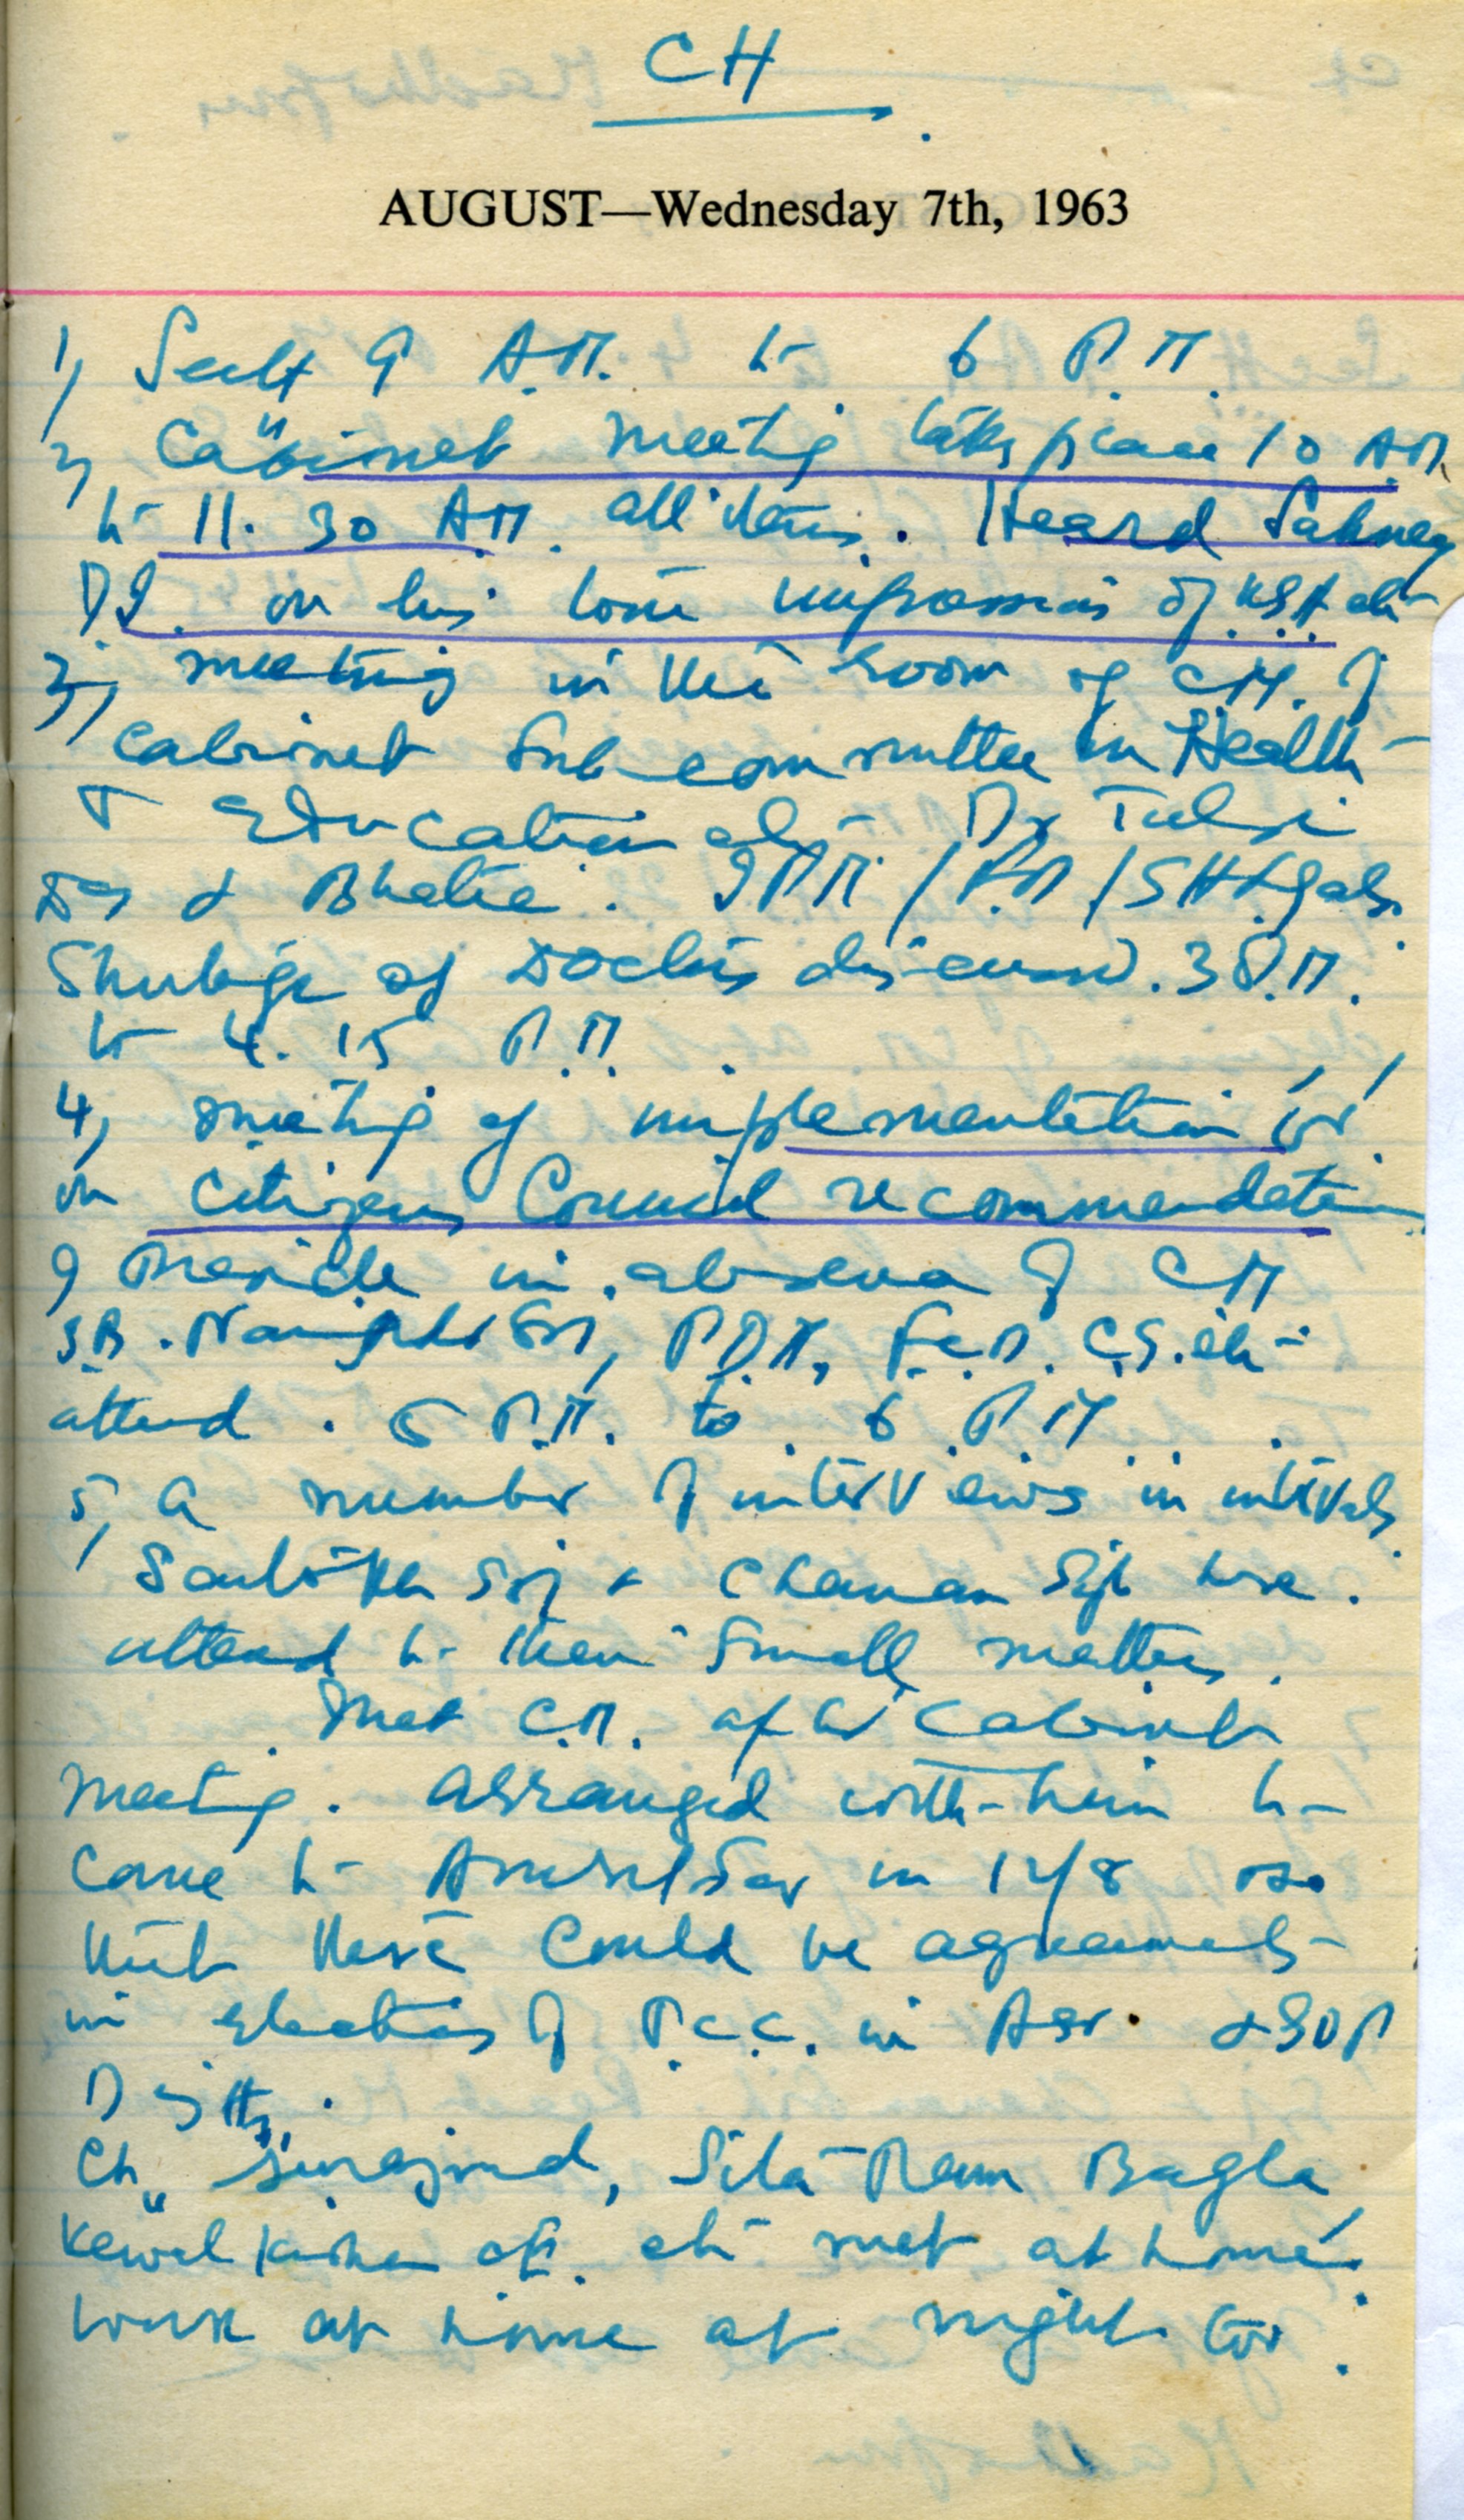 CH
AUGUST—Wednesday 7th, 1963
1) Sectt 9 A.M. to 6 P.M.
2) Cabinet meeting takes place 10 A.M.
to 11.30 A.M. all items. Heard Sahney
D.I. on his tour impressions of U.S.A. etc
3) meeting in the room of C.M. of
Cabinet Sub committee on Health
+ Education etc Dr Tulsi
Das & Bhatia.
Shortage of Doctors discussed. 3 P.M.
to 4.15 P.M.
4) meeting of implementation
on Citizens Council recommendation
I Preside in absence of CM
attend. 5 P.M. to 6 P.M.
5) A number of interviews in intervals
& Chanan Singh here.
attend to their small matters.
Met C.M. after Cabinet
meeting. Arranged with him to
come to Amritsar on 12/8 so
that there could be agreements
in elections of P.C.C. in Asr. & GDP
Distts.
Ch. Surajmal, Sita Ram Bagla
Kewal Kishan etc met at home.
Work at home at night too.